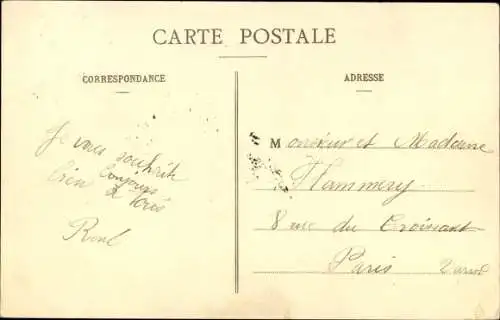 CARTE POSTALE
CORRESPONDANCE
ADRESSE
Je vous souhaite
bien
à tous
Monsieur et Madame
8 rue du Croissant
Paris